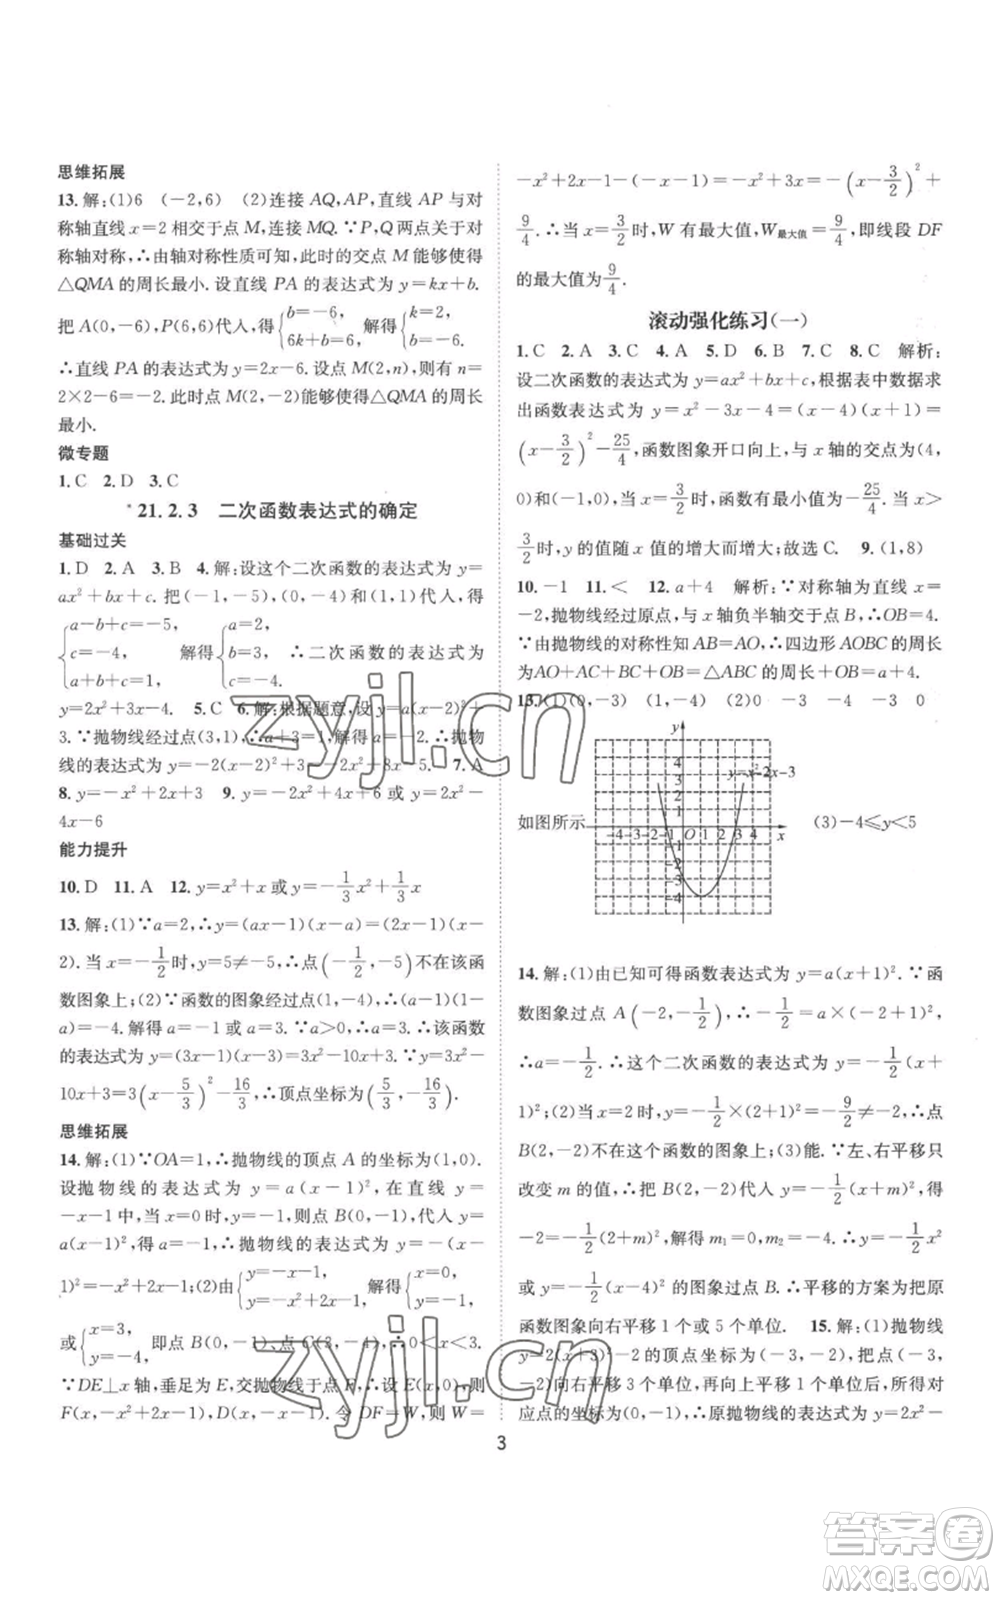 思维拓展
13.解:(1)6 (-2,6) (2)连接 AQ,AP,直线 AP 与对
称轴直线 x=2 相交于点 M,连接 MQ.∵P,Q 两点关于
对称轴对称,∴由轴对称性质可知,此时的交点 M 能够使得
△QMA 的周长最小. 设直线 PA 的表达式为 y=kx+b.
把 A(0,-6),P(6,6)代入,得{b=-6, 6k+b=6, 解得{k=2, b=-6.
∴直线 PA 的表达式为 y=2x-6. 设点 M(2,n),则有 n=
2×2-6=-2. 此时点 M(2,-2)能够使得△QMA 的周长
最小.
微专题
1.C 2.D 3.C
*21.2.3 二次函数表达式的确定
基础过关
1.D 2.A 3.B 4.解:设这个二次函数的表达式为 y=
ax²+bx+c. 把(-1,-5),(0,-4)和(1,1)代入,得
{a-b+c=-5, c=-4, a+b+c=1, 解得{a=2, b=3, c=-4. ∴二次函数的表达式为
y=2x²+3x-4. 5.C 6.解:根据题意,设 y=a(x-2)²+
3.∵抛物线经过点(3,1),∴a+3=1,解得 a=-2.∴抛物
线的表达式为 y=-2(x-2)²+3=-2x²+8x-5. 7.A
8.y=-x²+2x+3 9.y=-2x²+4x+6 或 y=2x²-
4x-6
能力提升
10.D 11.A 12.y=x²+x 或 y=-1/3x²+1/3x
13.解:(1)∵a=2,∴y=(ax-1)(x-a)=(2x-1)(x-
2). 当 x=-1/2时,y=5≠-5,∴点(-1/2,-5)不在该函
数图象上;(2)∵函数的图象经过点(1,-4),∴(a-1)(1-
a)=-4. 解得 a=-1 或 a=3.∵a>0,∴a=3,∴该函数
的表达式为 y=(3x-1)(x-3).∵y=(3x-1)(x-3)=3x²-
10x+3=3(x-5/3)²-16/3,∴顶点坐标为(5/3,-16/3).
思维拓展
14.解:(1)∵OA=1,∴抛物线的顶点 A 的坐标为(1,0).
设抛物线的表达式为 y=a(x-1)²,在直线 y=
-x-1 中,当 x=0 时,y=-1,则点 B(0,-1),代入 y=
a(x-1)²,得 a=-1,∴抛物线的表达式为 y=-(x-
1)²=-x²+2x-1;(2)由{y=-x-1, y=-x²+2x-1, 解得{x=0, y=-1,
或{x=3, y=-4, 即点 B(0,-1),点 C(3,-4),∴0<x<3.
∵DE⊥x 轴,垂足为 E,交抛物线于点 F,∴设 E(x,0),则
F(x,-x²+2x-1),D(x,-x-1). 令 DF=W,则 W=
-x²+2x-1-(-x-1)=-x²+3x=-(x-3/2)²+
9/4.∴当 x=3/2时,W 有最大值,W最大值=9/4,即线段 DF
的最大值为9/4.
滚动强化练习(一)
1.C 2.A 3.C 4.A 5.D 6.B 7.C 8.C 解析:
设二次函数的表达式为 y=ax²+bx+c,根据表中数据求
出函数表达式为 y=x²-3x-4=(x-4)(x+1)=
(x-3/2)²-25/4,函数图象开口向上,与 x 轴的交点为(4,
0)和(-1,0),当 x=3/2时,函数有最小值为-25/4.当 x>
3/2时,y 的值随 x 值的增大而增大;故选 C. 9.(1,8)
10.-1 11.< 12.a+4 解析:∵对称轴为直线 x=
-2,抛物线经过原点,与 x 轴负半轴交于点 B,∴OB=4.
∵由抛物线的对称性知 AB=AO,∴四边形 AOBC 的周长
为 AO+AC+BC+OB=△ABC 的周长+OB=a+4.
13.(1)(0,-3) (1,-4) (2)0 -3 -4 -3 0
y
4
3
2
1
y=x²-2x-3
如图所示 -4-3-2-1 O 1 2 3 4 x (3)-4≤y<5
-3
-4
14.解:(1)由已知可得函数表达式为 y=a(x+1)².∵函
数图象过点 A(-2,-1/2),∴-1/2=a×(-2+1)²,
∴a=-1/2.∴这个二次函数的表达式为 y=-1/2(x+
1)²;(2)当 x=2 时,y=-1/2×(2+1)²=-9/2≠-2,∴点
B(2,-2)不在这个函数的图象上;(3)能.∵左、右平移只
改变 m 的值,∴把 B(2,-2)代入 y=-1/2(x+m)²,得
-2=-1/2(2+m)²,解得 m₁=0,m₂=-4.∴y=-1/2x²
或 y=-1/2(x-4)² 的图象过点 B.∴平移的方案为把原
函数图象向右平移 1 个或 5 个单位. 15.解:(1)抛物线
y=2(x+3)²-2 的顶点坐标为(-3,-2),把点(-3,
-2)向右平移 3 个单位,再向上平移 1 个单位,所得对
应点的坐标为(0,-1),∴原抛物线的表达式为 y=2x²-
3
zyjl.cn
zyjl.cn
答案圈
MXQE.COM